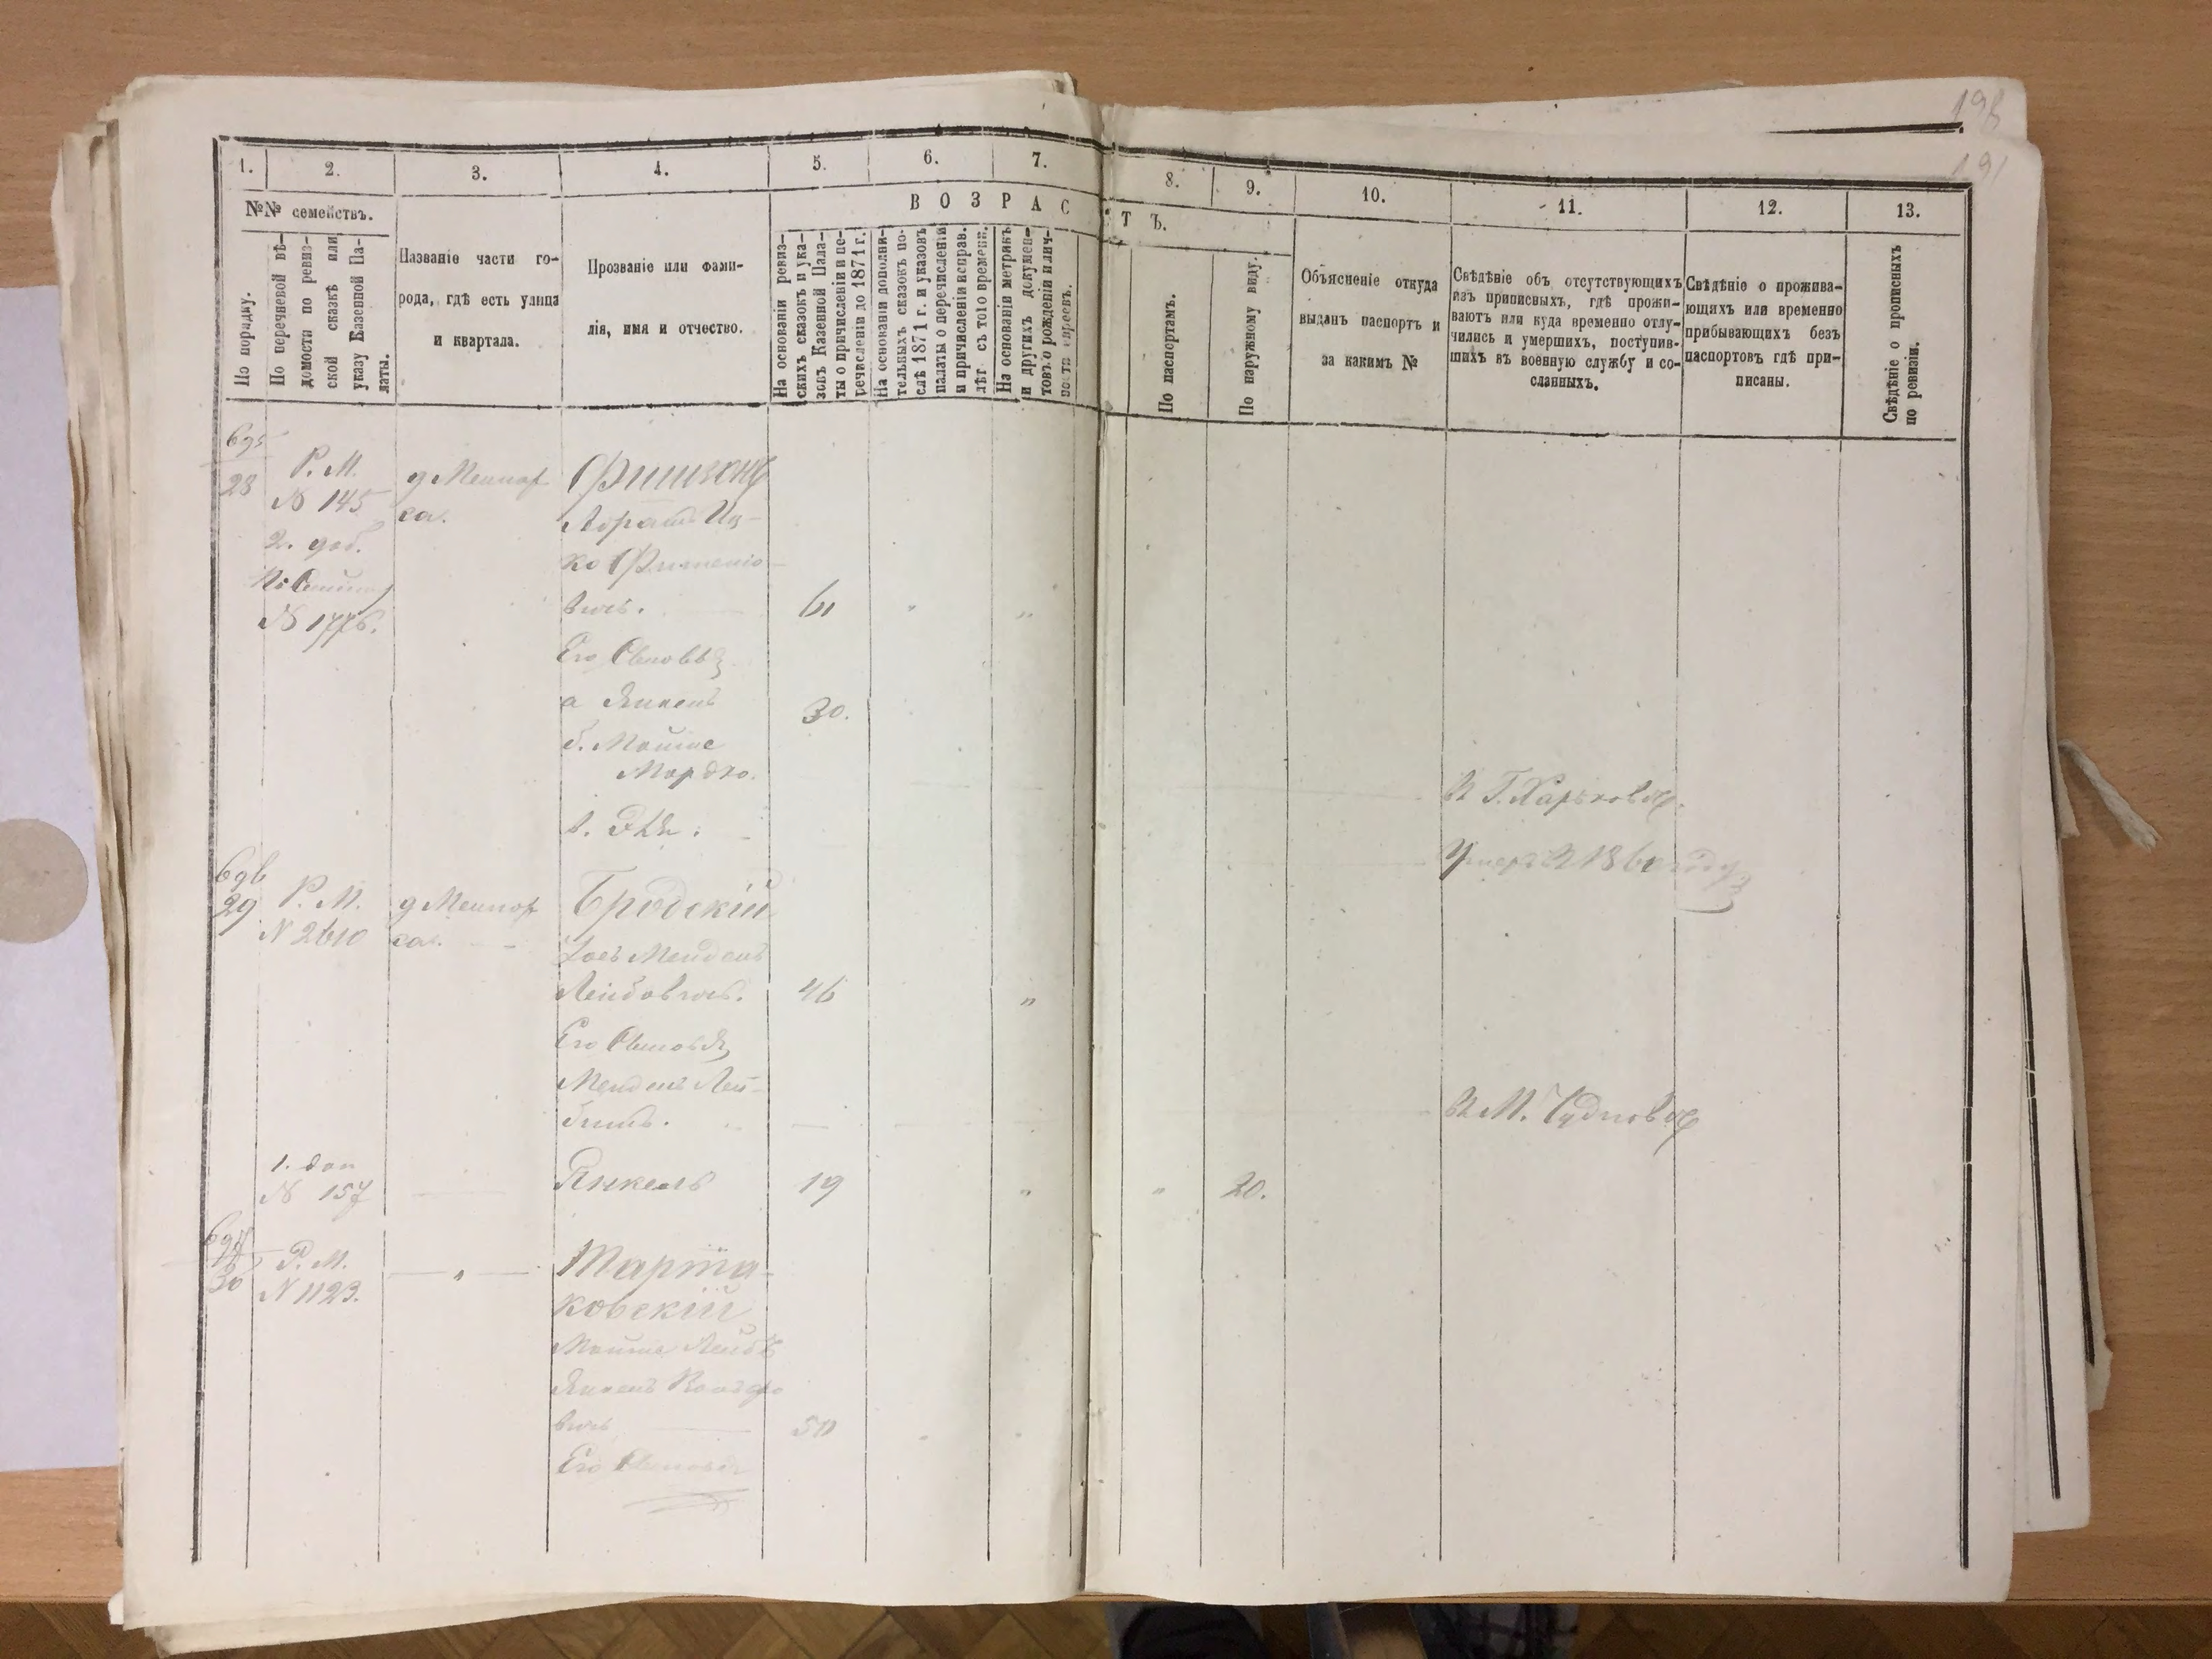 198
191
1.
2.
3.
4.
5.
6.
7.
8.
9.
10.
11.
12.
13.
№№ семействъ.
В О З Р А С
Т Ъ.
По порядку.
По перечневой вѣ-
домости по ревиз-
ской сказкѣ или
указу Казенной Па-
латы.
Названіе части го-
рода, гдѣ есть улица
и квартала.
Прозваніе или фами-
лія, имя и отчество.
На основаніи ревиз-
скихъ сказокъ и ука-
зовъ Казенной Пала-
ты о причисленіи и пе-
речисленіи до 1871 г.
На основаніи дополни-
тельныхъ сказокъ по-
слѣ 1871 г. и указовъ
палаты о перечисленіи
и причисленіи исправ.
лѣт. съ того времени.
На основаніи метрикъ
и другихъ докумен-
товъ о рожденіи и лич-
По паспортамъ.
По наружному виду.
Объясненіе откуда
выданъ паспортъ и
за какимъ №
Свѣдѣніе объ отсутствующихъ
изъ приписныхъ, гдѣ прожи-
ваютъ или куда временно отлу-
чились и умершихъ, поступив-
шихъ въ военную службу и со-
сланныхъ.
Свѣдѣніе о прожива-
ющихъ или временно
прибывающихъ безъ
паспортовъ гдѣ при-
писаны.
Свѣдѣніе о прописныхъ
по ревизіи.
695
28
Р. М.
№ 145
2.
№ 1776.
Абрамъ Иц-
ко
вичъ.
61
Его Сыновья
а Янкель
30.
б. Мойше
Мордко.
В Г. Харьковѣ.
в.
Умеръ в 186 году
696
29
Р. М.
N 2610
Бродскій
Мендель
Лейбовичъ.
46
Его Сыновья
Мендель Лей-
В М. Чудновѣ
1. доп
№ 157
Янкель
19
20.
697
30
Р. М.
N 1123.
Марта-
ковскій
Мойше Лейбъ
Янкель Вольфо
вичъ
50
Его Сыновья